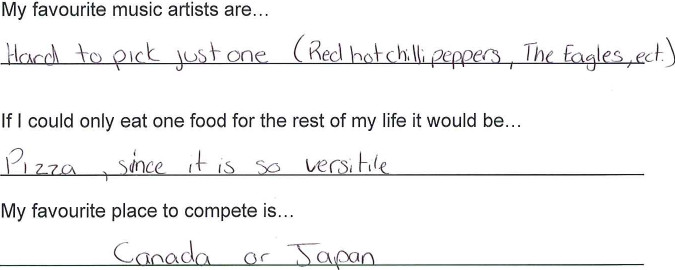 My favourite music artists are...
Hard to pick just one (Red hot chilli peppers, The Eagles, ect.)
If I could only eat one food for the rest of my life it would be...
Pizza, since it is so versitile
My favourite place to compete is...
Canada or Japan